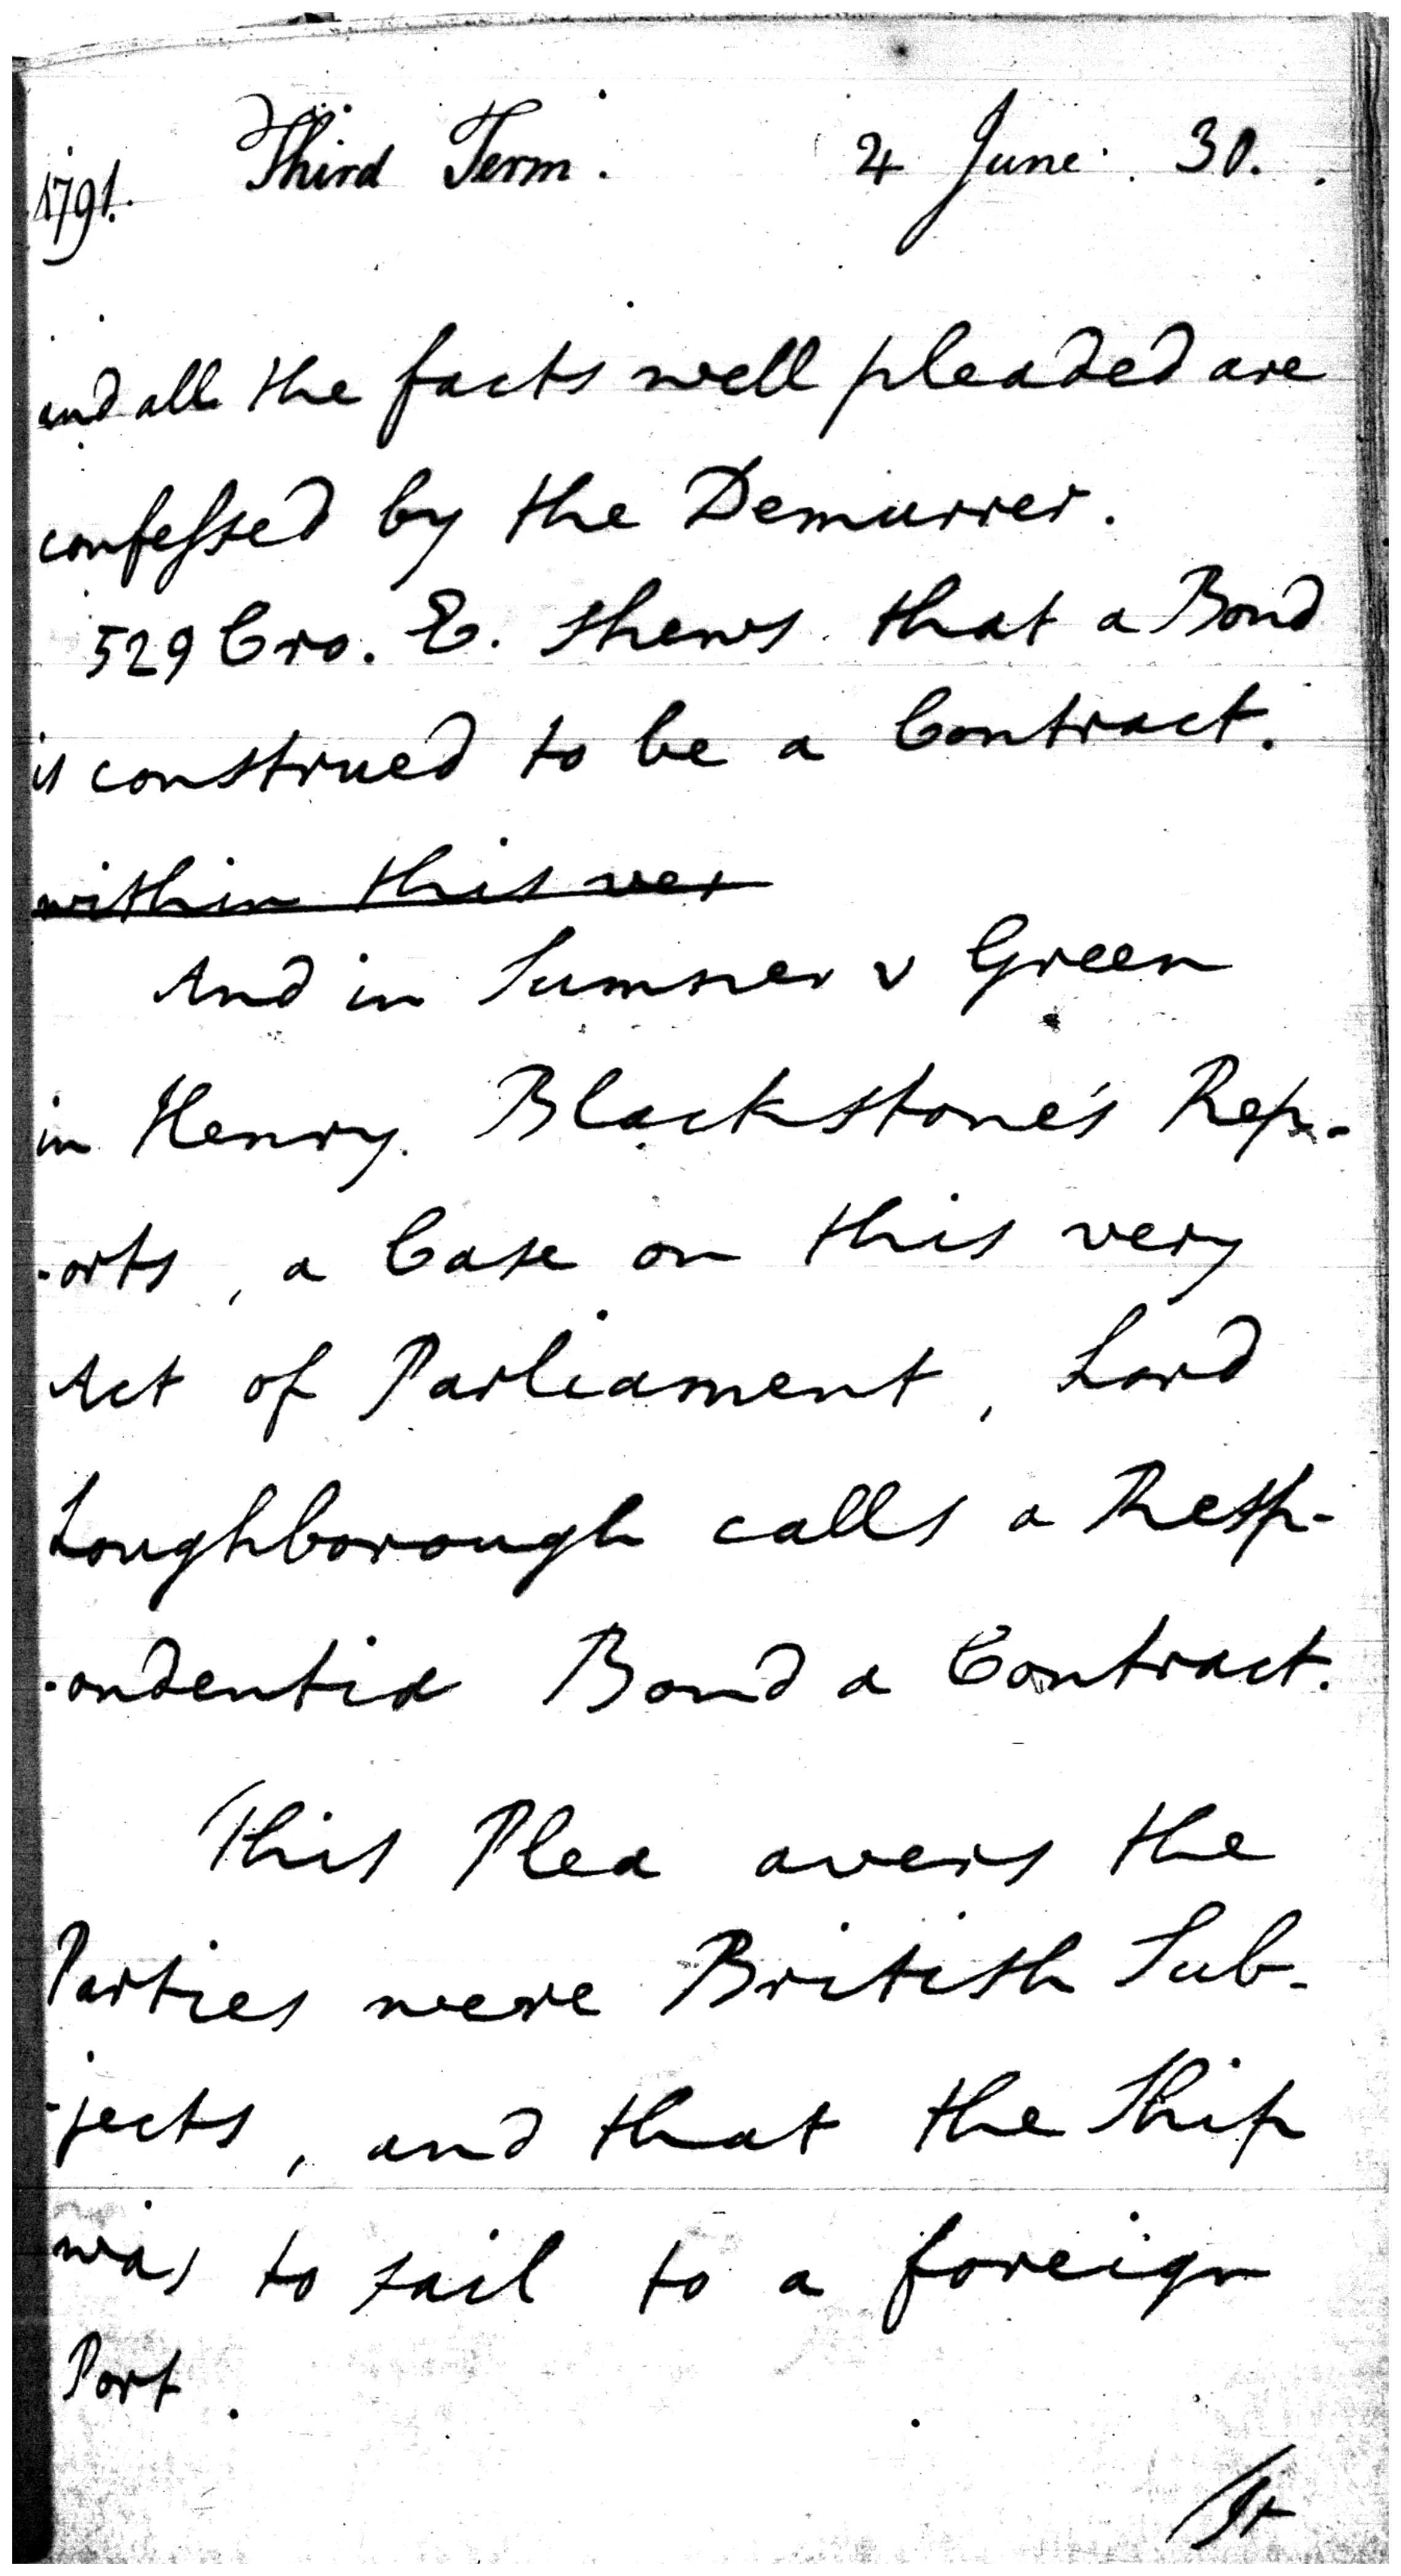 1791. Third Term. 4 June. 30.
and all the facts well pleaded are
confessed by the Demurrer.
529 Cro. E. shews that a Bond
is construed to be a Contract.
within this ver
And in Sumner v Green
in Henry Blackstone's Rep-
-orts, a Case on this very
Act of Parliament, Lord
Loughborough calls a Resp-
-ondentia Bond a Contract.
This Plea avers the
Parties were British Sub-
-jects, and that the Ship
was to sail to a foreign
Port.
It